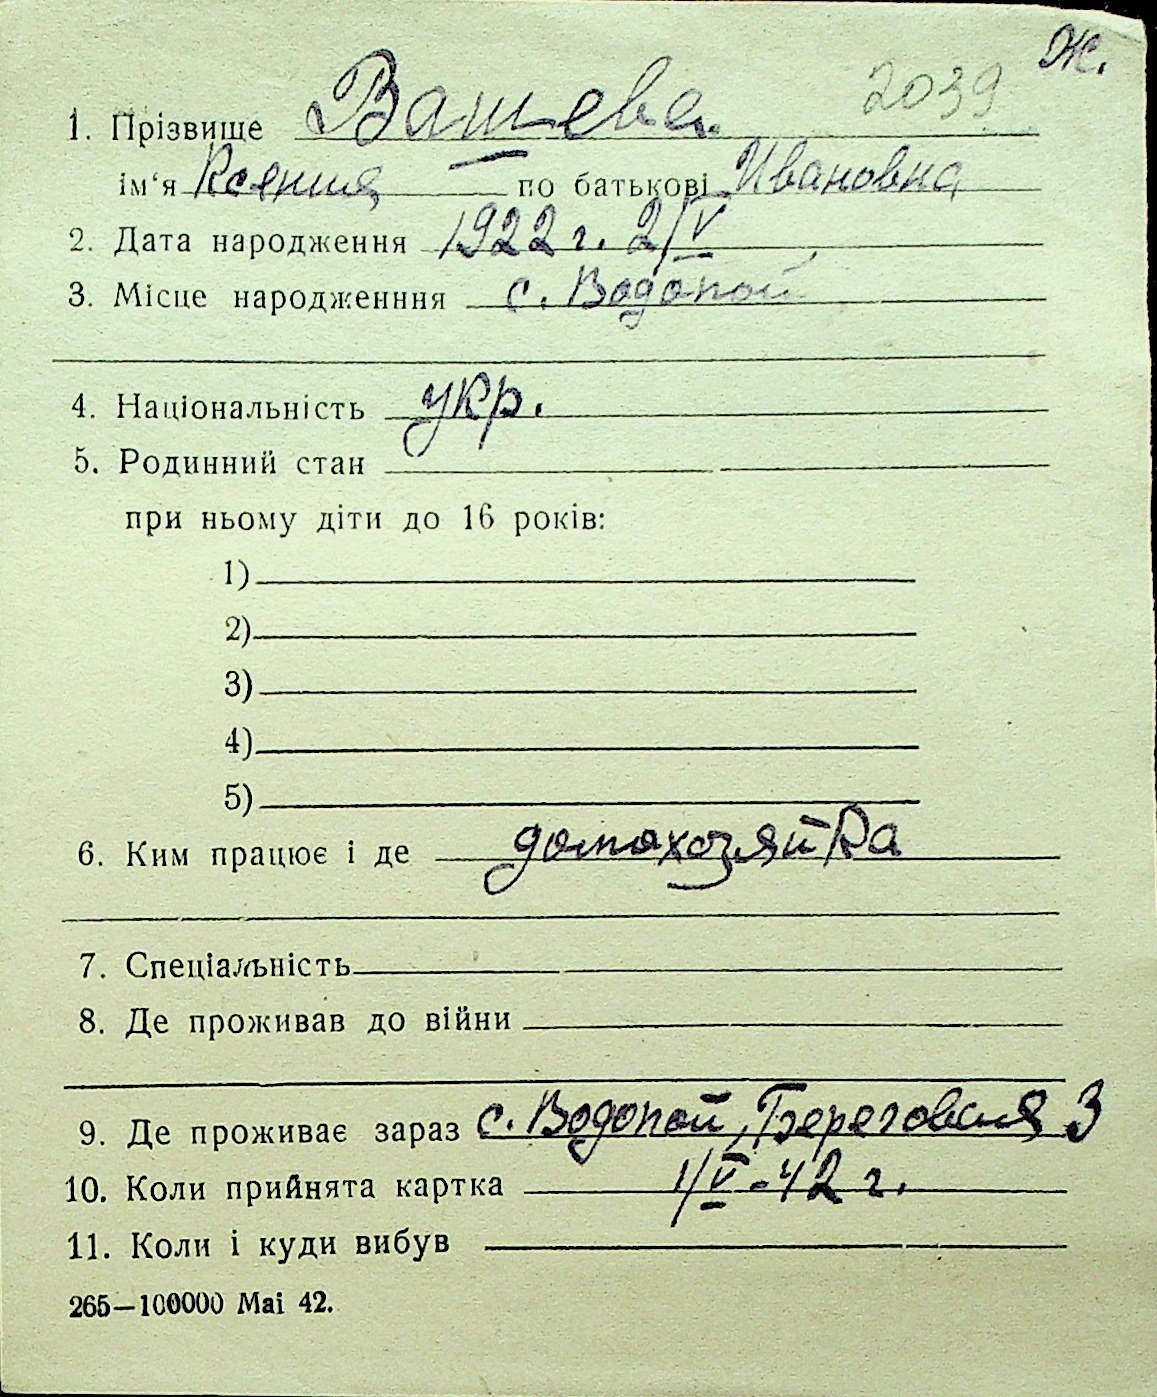 Ж.
2039
1. Прізвище Вашева
ім‘я Ксения по батькові Ивановна
2. Дата народження 1922 г. 2/V
3. Місце народженння с. Водопой
4. Національність укр.
5. Родинний стан
при ньому діти до 16 років:
1)
2)
3)
4)
5)
6. Ким працює і де домохозяйка
7. Спеціальність
8. Де проживав до війни
9. Де проживає зараз с. Водопой, Береговая 3
10. Коли прийнята картка 1/V-42 г.
11. Коли і куди вибув
265—100000 Маі 42.